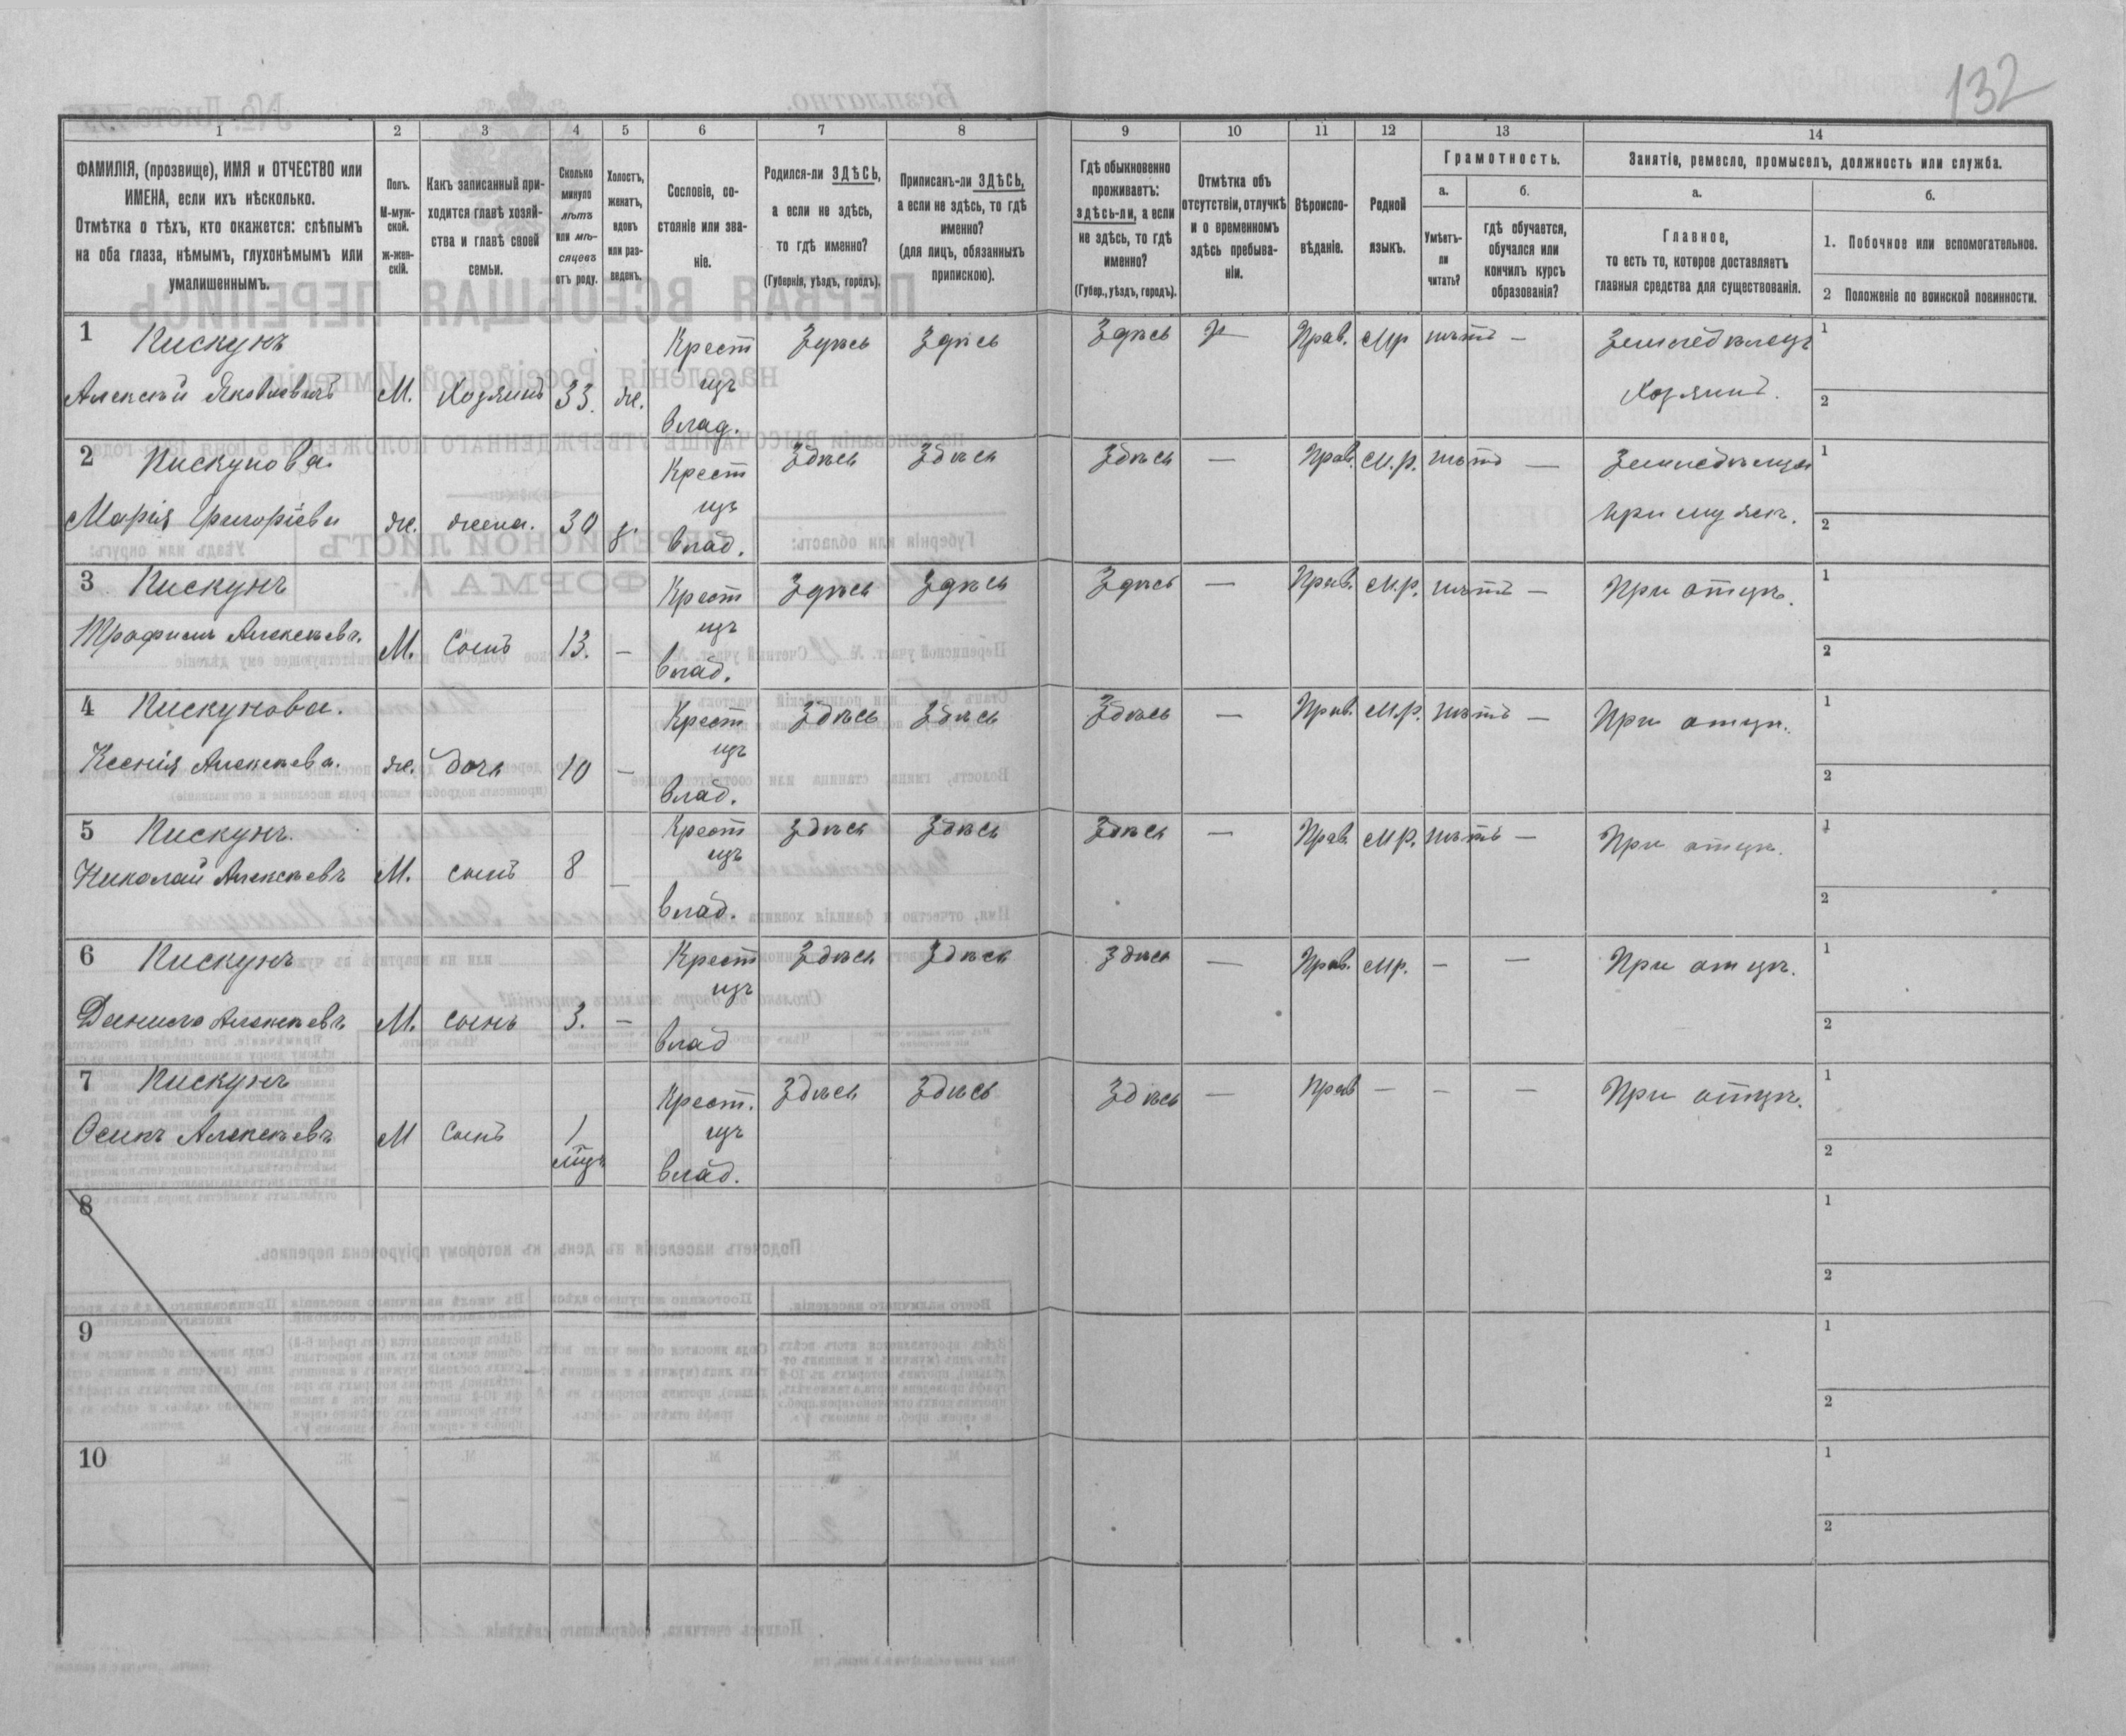 132
1 2 3 4 5 6 7 8 9 10 11 12 13 14
ФАМИЛІЯ, (прозвище), ИМЯ и ОТЧЕСТВО или
ИМЕНА, если ихъ нѣсколько.
Отмѣтка о тѣхъ, кто окажется: слѣпымъ
на оба глаза, нѣмымъ, глухонѣмымъ или
умалишеннымъ.
Полъ.
М-муж-
ской.
ж-жен-
скій.
Какъ записанный при-
ходится главѣ хозяй-
ства и главѣ своей
семьи.
Сколько
минуло
лѣтъ
или мѣ-
сяцевъ
отъ роду.
Холостъ,
женатъ,
вдовъ
или раз-
веденъ.
Сословіе, со-
стояніе или зва-
ніе.
Родился-ли ЗДѢСЬ,
а если не здѣсь,
то гдѣ именно?
(Губернія, уѣздъ, городъ).
Приписанъ-ли ЗДѢСЬ,
а если не здѣсь, то гдѣ
именно?
(для лицъ, обязанныхъ
припискою).
Гдѣ обыкновенно
проживаетъ:
здѣсь-ли, а если
не здѣсь, то гдѣ
именно?
(Губер., уѣздъ, городъ).
Отмѣтка объ
отсутствіи, отлучкѣ
и о временномъ
здѣсь пребыва-
ніи.
Вѣроиспо-
вѣданіе.
Родной
языкъ.
Грамотность.
а.
Умѣетъ-
ли
читать?
б.
гдѣ обучается,
обучался или
кончилъ курсъ
образованія?
Занятіе, ремесло, промыселъ, должность или служба.
а.
Главное,
то есть то, которое доставляетъ
главныя средства для существованія.
б.
1. Побочное или вспомогательное.
2 Положеніе по воинской повинности.
1 Пискунъ
Алексѣй Яковлевичъ М. Хозяинъ 33. же. Крест изъ влад. Здѣсь Здѣсь Здѣсь Прав. Мр нѣтъ — Земледѣлецъ Хозяинъ. 1 2
2 Пискунова.
Марія Григоріева же. жена. 30 Крест изъ влад. Здѣсь Здѣсь Здѣсь — Прав. М.р. нѣтъ — при мужѣ. 1 2
3 Пискунъ
Трафимъ Алексѣевъ. М. Сынъ 13. — Крест изъ влад. Здѣсь Здѣсь Здѣсь — Прав. М.р. нѣтъ — При отцѣ. 1 2
4 Пискунова.
Ксенія Алексѣева. же. дочь 10 — Крест изъ влад. Здѣсь Здѣсь Здѣсь — Прав. М.р. нѣтъ — При отцѣ. 1 2
5 Пискунъ.
Николай Алексѣевъ М. сынъ 8 — Крест изъ влад. Здѣсь Здѣсь Здѣсь — Прав. М.р. нѣтъ — При отцѣ. 1 2
6 Пискунъ
Данило Алексѣевъ М. сынъ 3. — Крест изъ влад Здѣсь Здѣсь Здѣсь — Прав. Мр. — — При отцѣ. 1 2
7 Пискунъ
Осипъ Алексѣевъ М сынъ 1 мѣц. Крест. изъ влад. Здѣсь Здѣсь Здѣсь — Прав — — — При отцѣ. 1 2
8 1 2
9 1 2
10 1 2